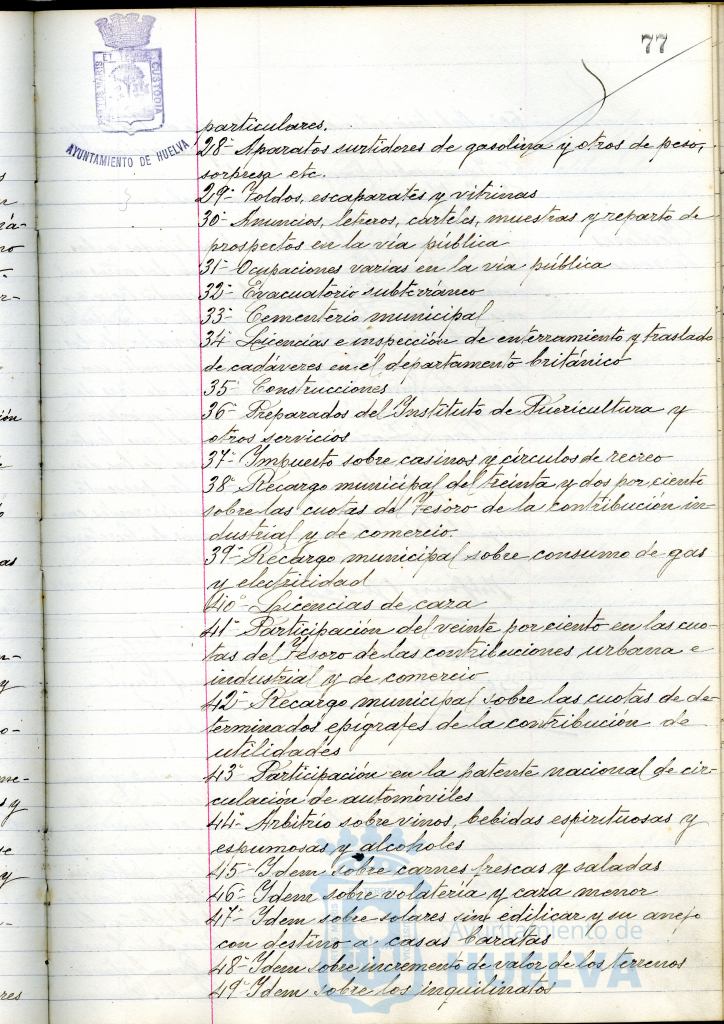 77
PORTUS MARIS ET TERRAE CUSTODIA
AYUNTAMIENTO DE HUELVA
particulares.
28- Aparatos surtidores de gasolina y otros de peso,
sorpresa etc.
29- Toldos, escaparates y vitrinas
30- Anuncios, letreros, carteles, muestras y reparto de
prospectos en la vía pública
31- Ocupaciones varias en la vía pública
32- Evacuatorio subterráneo
33- Cementerio municipal
34 Licencias e inspección de enterramiento y traslado
de cadáveres en el departamento británico
35- Construcciones
36- Preparados del Instituto de Puericultura y
otros servicios
37- Impuesto sobre casinos y círculos de recreo
38- Recargo municipal del treinta y dos por ciento
sobre las cuotas del Tesoro de la contribución in-
dustrial y de comercio.
39- Recargo municipal sobre consumo de gas
y electricidad
40- Licencias de caza
41- Participación del veinte por ciento en las cuo-
tas del Tesoro de las contribuciones urbana e
industrial y de comercio
42- Recargo municipal sobre las cuotas de de-
terminados epígrafes de la contribución de
utilidades
43- Participación en la patente nacional de cir-
culación de automóviles
44- Arbitrio sobre vinos, bebidas espirituosas y
espumosas y alcoholes
45- Idem sobre carnes frescas y saladas
46- Idem sobre volatería y caza menor
47- Idem sobre solares sin edificar y su anejo
con destino a casas baratas
48- Idem sobre incremento de valor de los terrenos
49- Idem sobre los inquilinatos
Ayuntamiento de
HUELVA